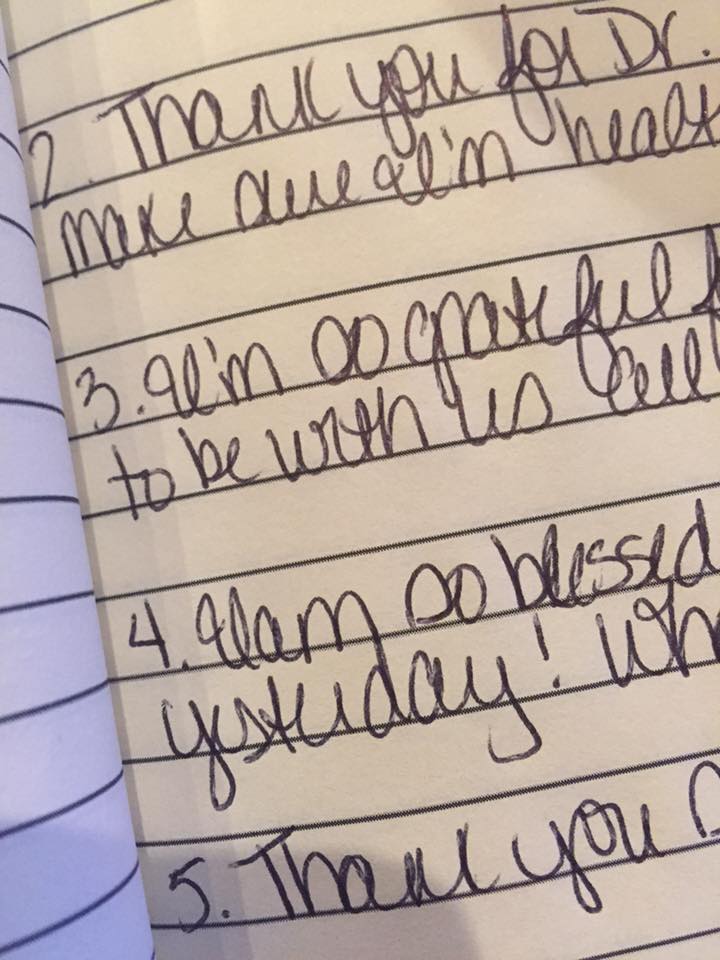 2. Thank you for Dr.
make sure I'm healt
3. I'm so grateful f
to be with us
4. I am so blessed
yesterday! Wh
5. Thank you